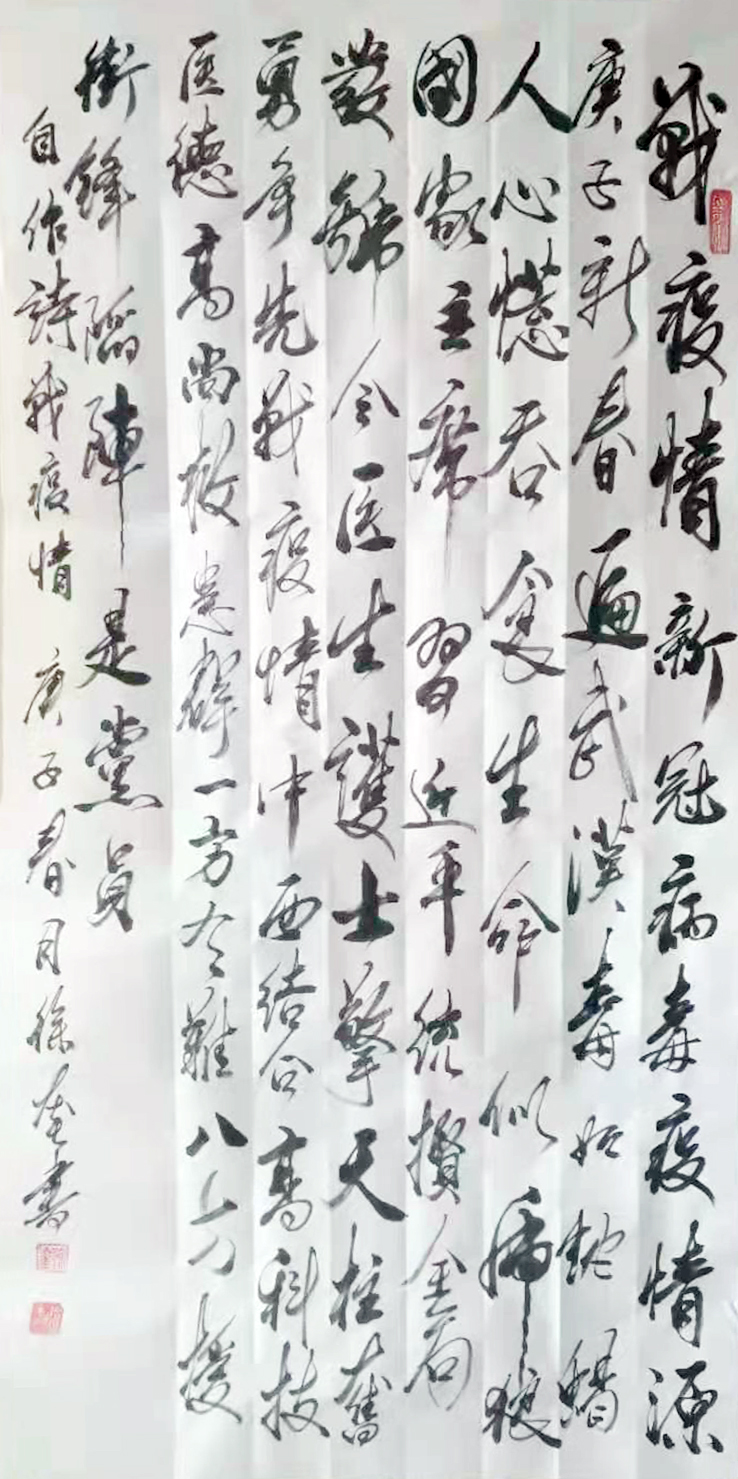 戰疫情新冠病毒疫情源
庚子新春遍武漢毒如蛇蝎
人心慌吞食生命似虎狼
國家主席習近平統攬全局
發號令医生護士擎天柱奮
勇争先戰疫情中西結合高科技
医德高尚救患群一方有難八方援
衝鋒陷陣是黨員
自作詩戰疫情庚子春月徐書